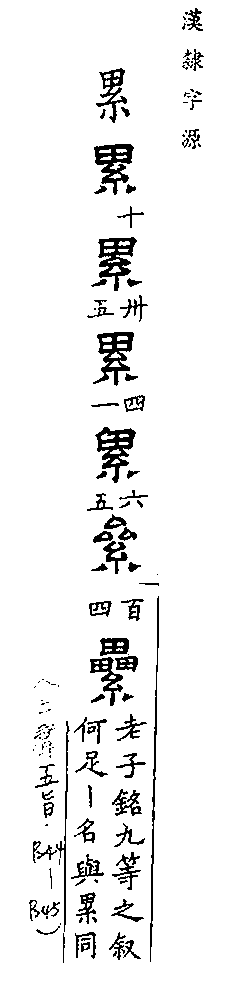 漢隸字源
累
累
十
累
卅五
累
四一
累
六五
絫
百四
纍
老子銘九等之叙
何足丨名與累同
五旨．B44—B45）